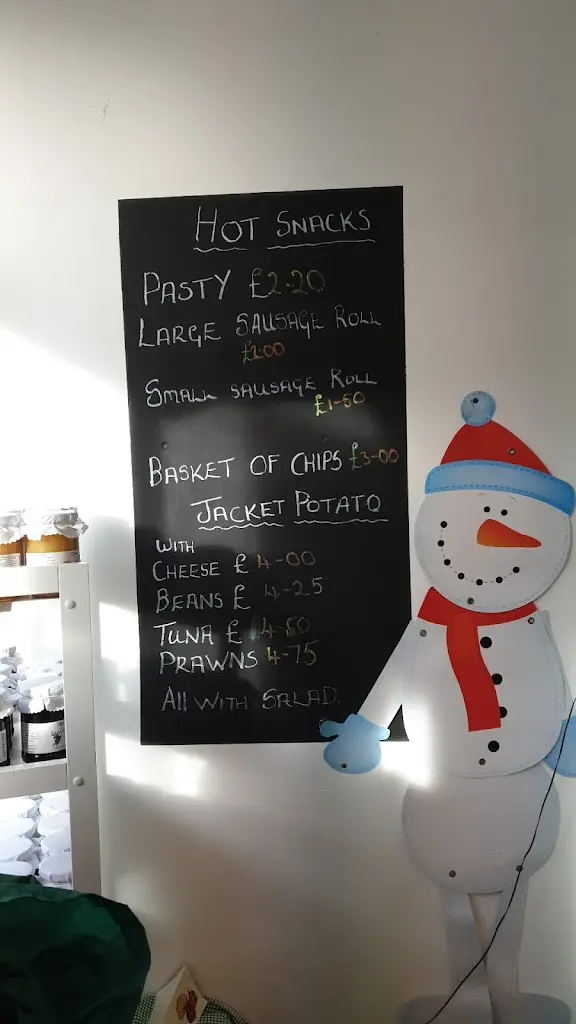 HOT SNACKS
PASTY £2.20
LARGE SAUSAGE ROLL
£2.00
SMALL SAUSAGE ROLL
£1-50
BASKET OF CHIPS £3-00
JACKET POTATO
WITH
CHEESE £ 4-00
BEANS £ 4-25
TUNA £ 4-50
PRAWNS 4-75
All WITH SALAD.